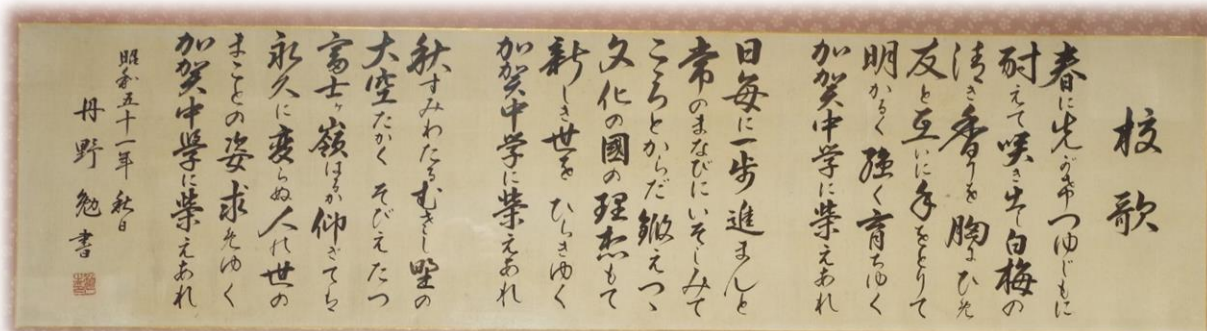 校歌
春に先がけつゆじもに
耐えて咲き出し白梅の
清き香りを胸にひめ
友と互いに手をとりて
明かるく強く育ちゆく
加賀中学に栄えあれ
日毎に一歩進まんと
常のまなびにいそしみて
こころとからだ鍛えつゝ
文化の國の理想もて
新しき世をひらきゆく
加賀中学に栄えあれ
秋すみわたるむさし野の
大空たかくそびえたつ
富士ヶ嶺はるか仰ぎては
永久に変らぬ人の世の
まことの姿求めゆく
加賀中學に栄えあれ
昭和五十一年 秋日
丹野勉書